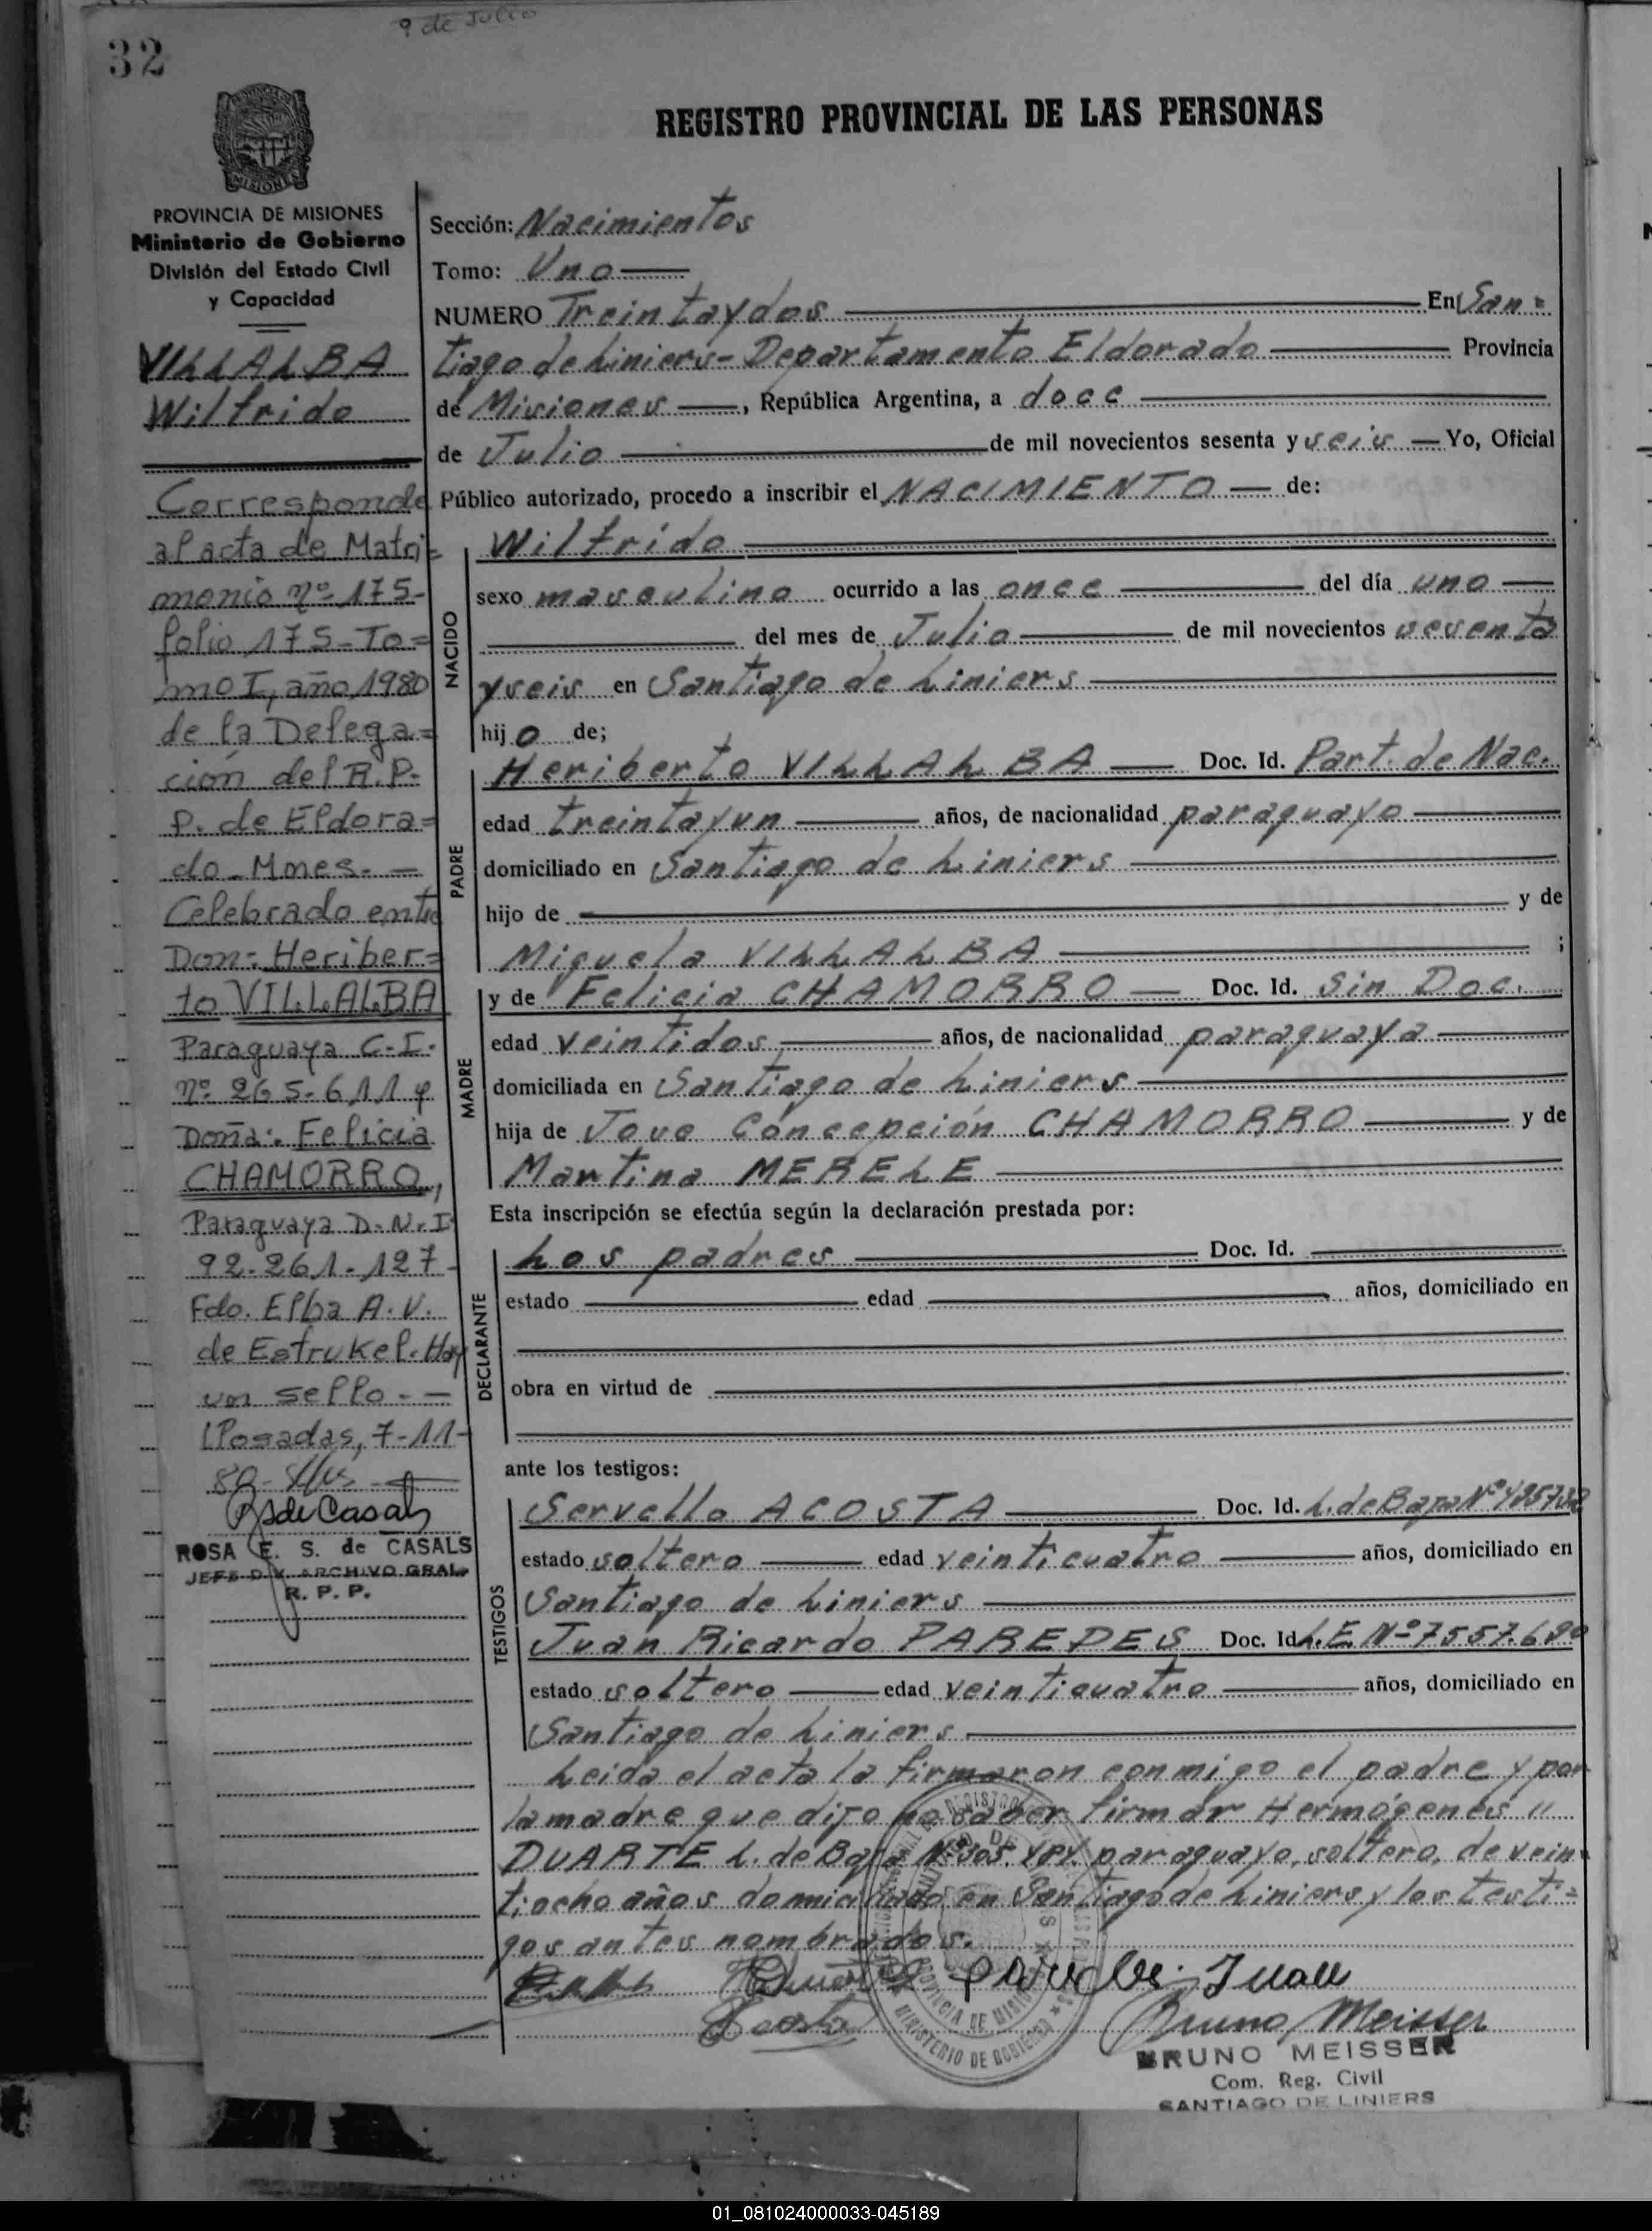 9 de Julio
32
REGISTRO PROVINCIAL DE LAS PERSONAS
MISIONES
PROVINCIA DE MISIONES
Ministerio de Gobierno
División del Estado Civil
y Capacidad
VILLALBA
Wilfrido
Corresponde
al acta de Matri=
monio nº 175-
folio 175-To=
mo I, año 1980
de la Delega=
ción del R.P.
P. de Eldora=
do-Mnes.-
Celebrado entre
Don: Heriber=
to VILLALBA
Paraguaya C.I.
nº 265.611 y
Doña: Felicia
CHAMORRO,
Paraguaya D.N.I.
92.261.127-
Fdo. Elba A.V.
de Estrukel. Hay
un sello.-
Posadas, 7-11-
ROSA E. S. de CASALS
JEFE DIV. ARCHIVO GRAL.
R. P. P.
Sección: Nacimientos
Tomo: Uno
NUMERO Treintaydos En San=
tiago de Liniers-Departamento Eldorado Provincia
de Misiones, República Argentina, a doce
de Julio de mil novecientos sesenta y seis Yo, Oficial
Público autorizado, procedo a inscribir el NACIMIENTO de:
NACIDO
Wilfrido
sexo masculino ocurrido a las once del día uno
del mes de Julio de mil novecientos sesenta
yseis en Santiago de Liniers
hijo de;
PADRE
Heriberto VILLALBA Doc. Id. Part. de Nac.
edad treintayun años, de nacionalidad paraguayo
domiciliado en Santiago de Liniers
hijo de y de
Miguela VILLALBA ;
MADRE
y de Felicia CHAMORRO Doc. Id. Sin Doc.
edad veintidos años, de nacionalidad paraguaya
domiciliada en Santiago de Liniers
hija de Jose Concepción CHAMORRO y de
Martina MERELE
Esta inscripción se efectúa según la declaración prestada por:
DECLARANTE
Los padres Doc. Id.
estado edad años, domiciliado en
obra en virtud de
ante los testigos:
TESTIGOS
Servello ACOSTA Doc. Id. L. de Baja Nº
estado soltero edad veinticuatro años, domiciliado en
Santiago de Liniers
Juan Ricardo PAREDES Doc. Id. L.E Nº 7557.680
estado soltero edad veinticuatro años, domiciliado en
Santiago de Liniers
Leida el acta la firmaron conmigo el padre y por
la madre que dijo no saber firmar Hermógenes "
DUARTE L. de Baja Nº 305. paraguayo, soltero, de vein=
tiocho años domiciliado en Santiago de Liniers y los testi=
gos antes nombrados.
Juan
Acosta
Bruno Meisser
PROVINCIA DE MISIONES
MINISTERIO DE GOBIERNO
BRUNO MEISSER
Com. Reg. Civil
SANTIAGO DE LINIERS
01_081024000033-045189